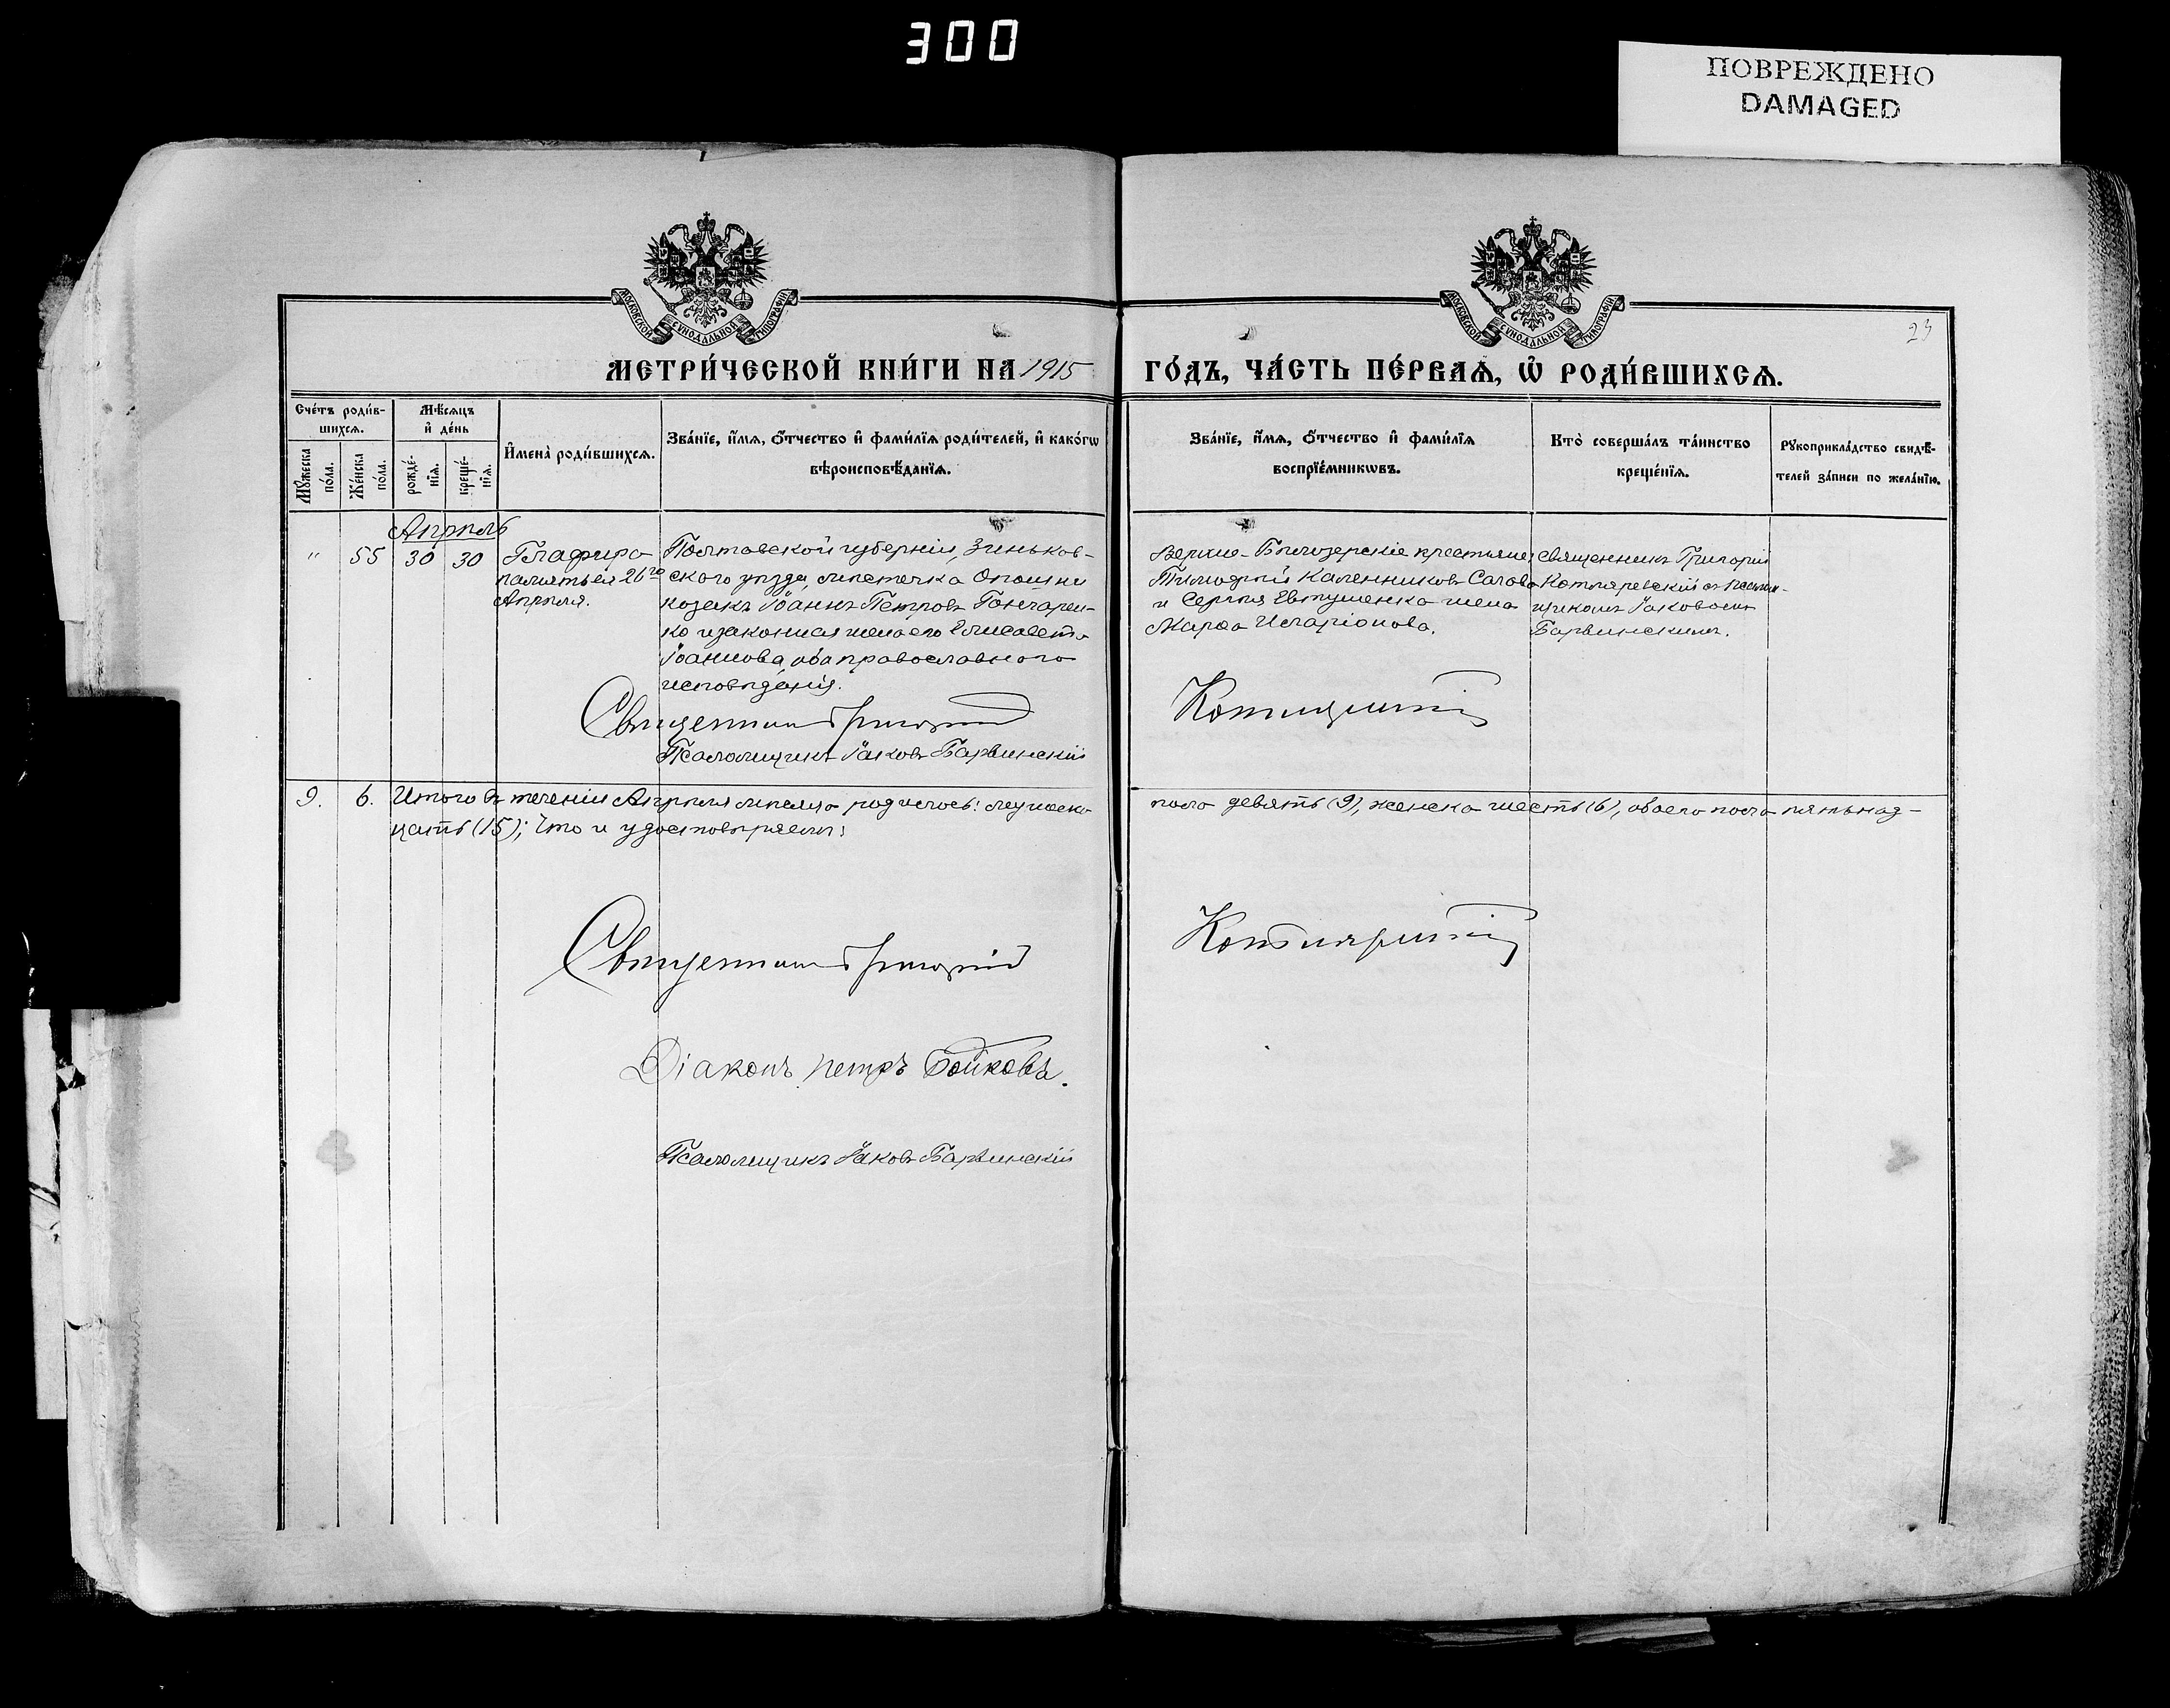 300
ПОВРЕЖДЕНО
DAMAGED
МОСКОВСКОЙ СУНОДАЛЬНОЙ ТИПОГРАФІИ
МОСКОВСКОЙ СУНОДАЛЬНОЙ ТИПОГРАФІИ
23
МЕТРИ́ЧЕСКОЙ КНИ́ГИ НА 1915
ГО́ДЪ, ЧА́СТЬ ПЕ́РВАѦ, Ѡ҆ РОДИ́ВШИХСѦ.
Сче́тъ роди́в-
шихсѧ.
Мꙋ́жеска по́ла.
Же́нска по́ла.
Мѣ́сѧцъ
и҆ де́нь
рожде́-
нїѧ.
креще́-
нїѧ.
И҆мена̀ роди́вшихсѧ.
Зва́нїе, и҆́мѧ, ѻ҆́тчество и҆ фами́лїѧ роди́телей, и҆ како́гѡ
вѣроисповѣ́данїѧ.
Зва́нїе, и҆́мѧ, ѻ҆́тчество и҆ фами́лїѧ
воспрїе́мникѡвъ.
Кто̀ соверша́лъ та́инство
креще́нїѧ.
Рꙋкоприкла́дство свидѣ́-
телей за́писи по жела́нїю.
Апрѣль
" 55 30 30
Глафира
память ея 26го
Апрѣля.
Полтавской губерніи, Зиньков-
скаго уѣзда, мѣстечка Опошни
козакъ Іоаннъ Петровъ Гончарен-
ко и законная жена его Елисавета
Іоаннова, оба православнаго
исповѣданія.
Верхне-Бѣлозерскіе крестьяне:
Тимофей Каленниковъ
и Сергѣя Евтушенка жена
Марфа Иларіонова.
Священникъ Григорій
Котляревскій съ псалом-
щикомъ Іаковомъ
Барвинскимъ.
Священникъ Григорій
Котляревскій
Псаломщикъ Іаковъ Барвинскій
9. 6. Итого въ теченіи Апрѣля мѣсяца родилось: мужеска
пола девять (9), женска шесть (6), обоего пола пятьнад-
цать (15); Что и удостовѣряемъ:
Священникъ Григорій
Котляревскій
Діаконъ Петръ Бойковъ.
Псаломщикъ Іаковъ Барвинскій